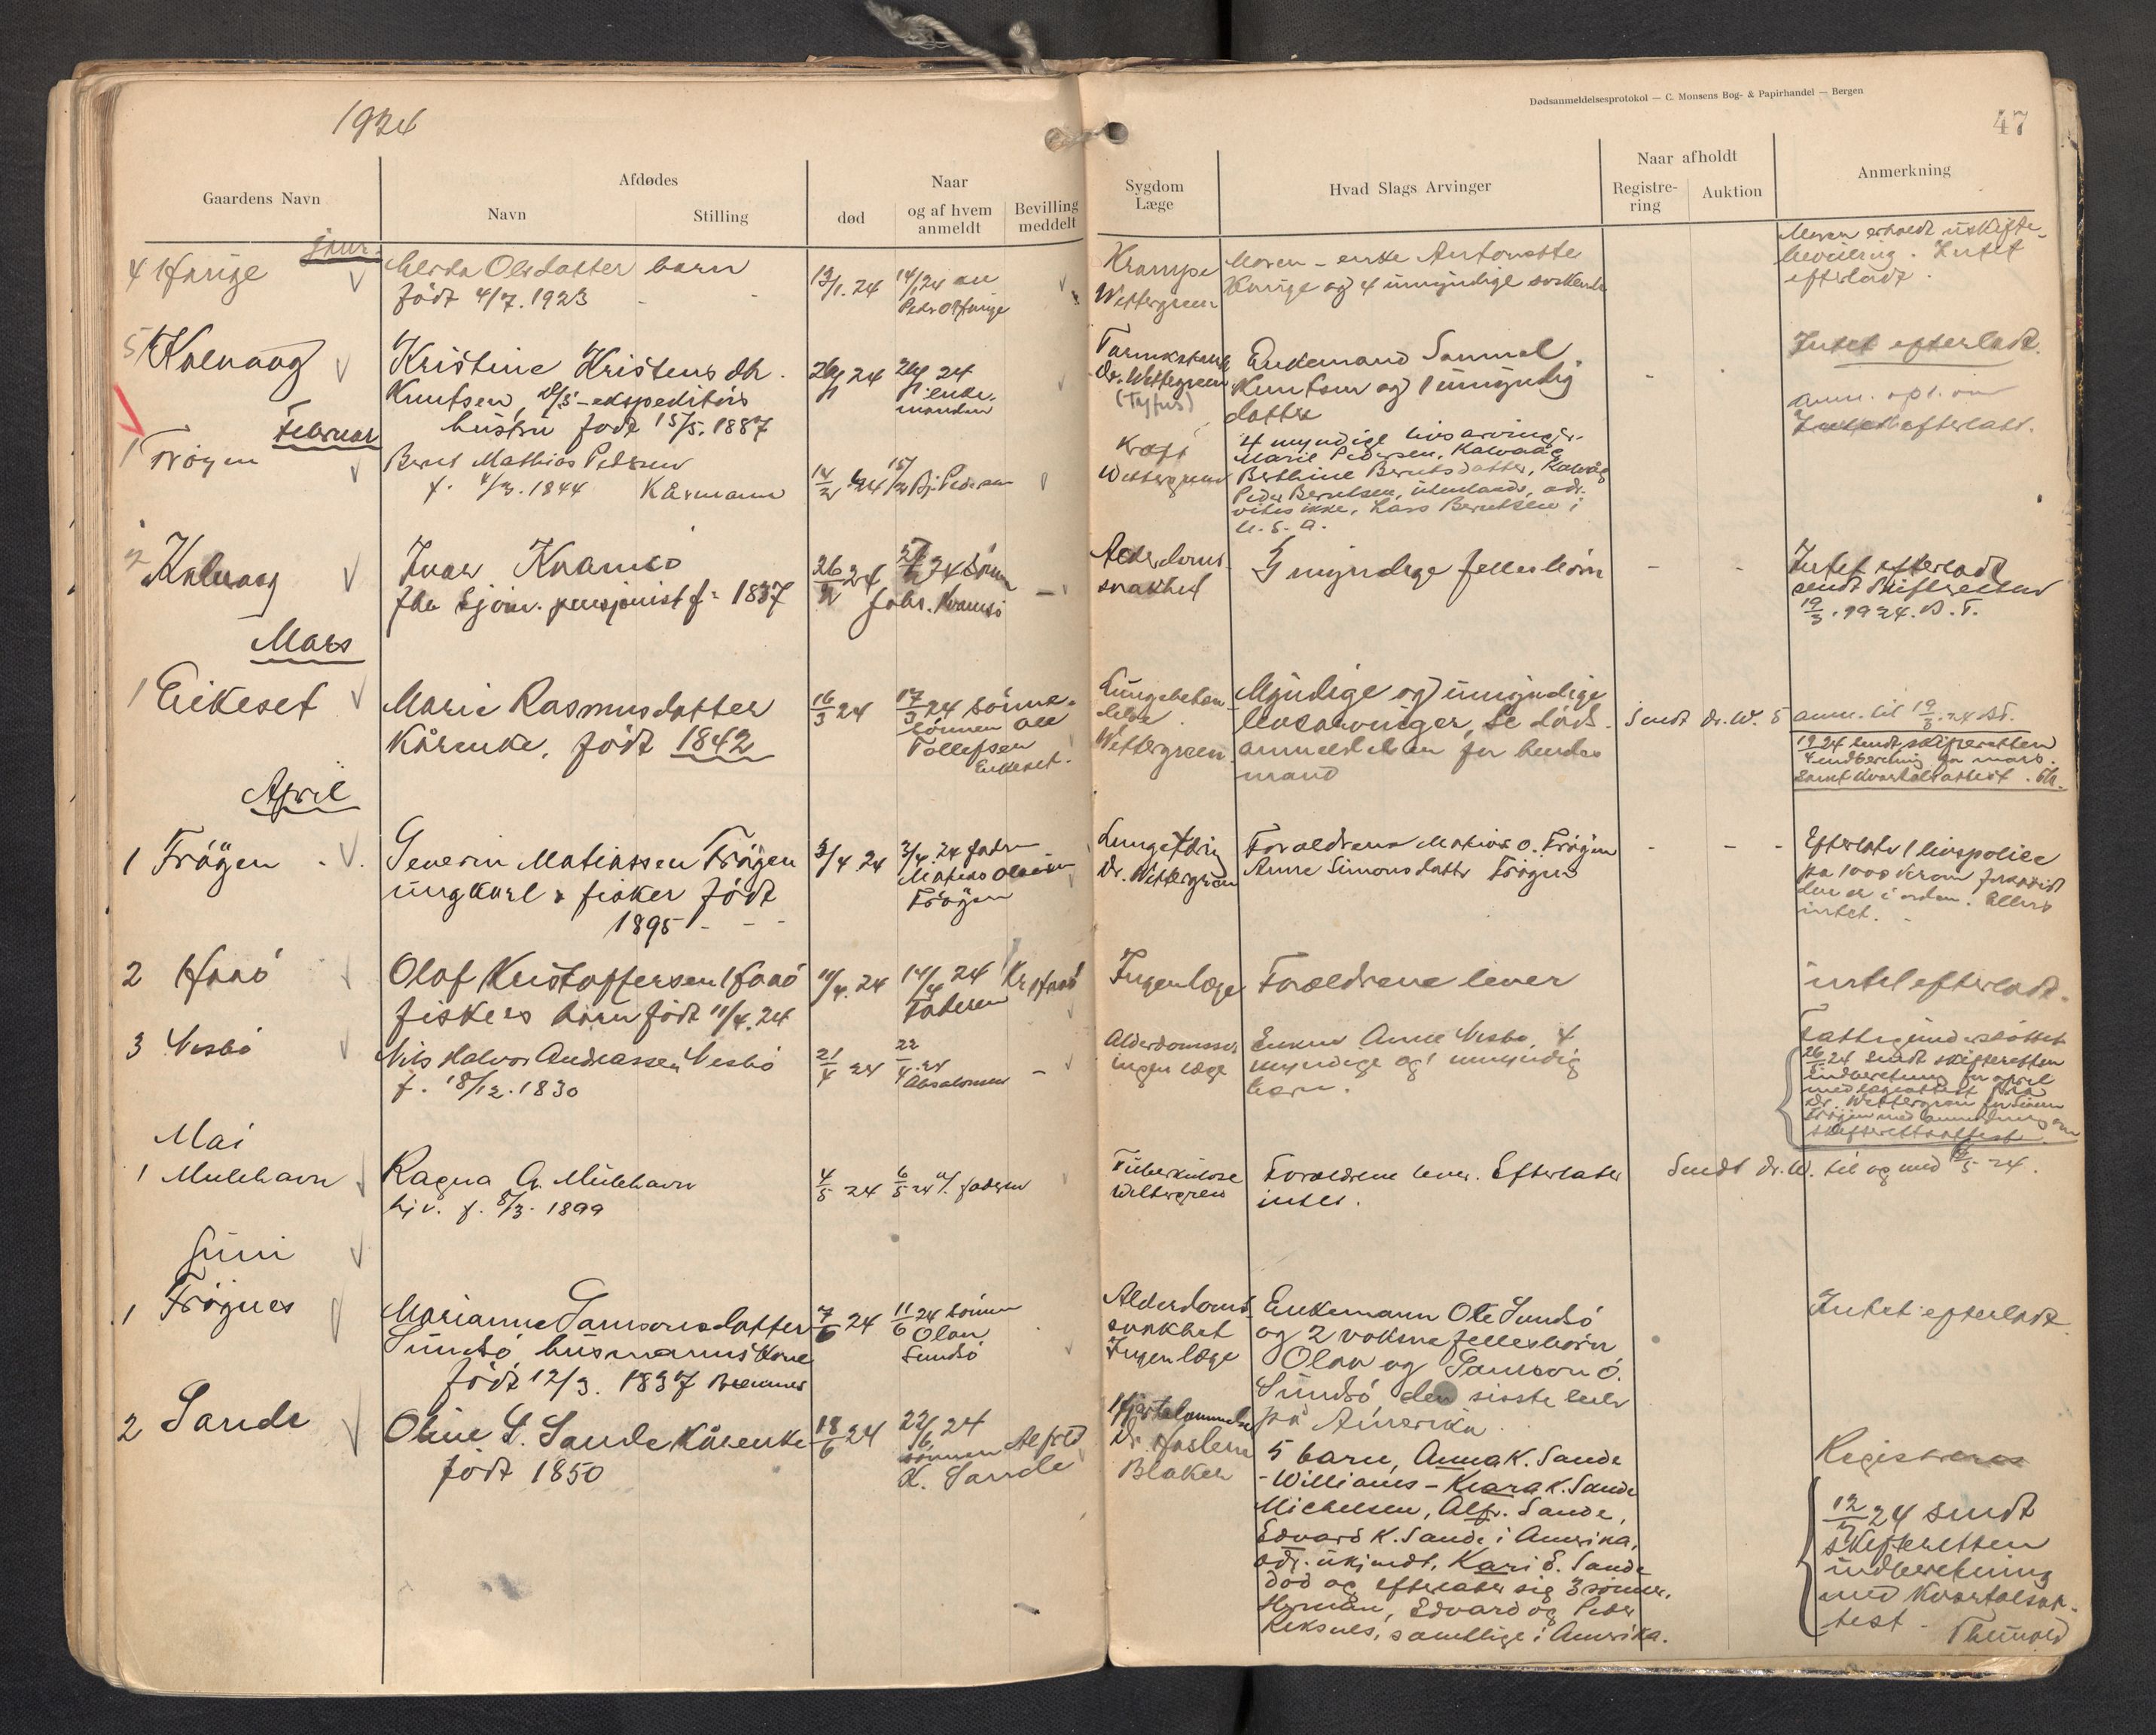 1924
Dødsanmeldelsesprotokol — C. Monsens Bog- & Papirhandel — Bergen
47
Gaardens Navn
Afdødes
Navn
Stilling
Naar
død
og af hvem
anmeldt
Bevilling
meddelt
Sygdom
Læge
Hvad Slags Arvinger
Naar afholdt
Registre-
ring
Auktion
Anmerkning
Januar
4
Olsdatter barn
født 4/7. 1923
13/1. 24
14/1 24
Krampe
Wettergreen
Moren - enke Antonette
og 4 umyndige søsken
Moren erholdt uskifte-
bevilling. Intet
efterladt.
5 Kalvaag
Kristine Kristensdtr.
Knutsen, d/s-ekspeditørs
hustru født 15/5. 1887
24
24
enke-
manden
Dr. Wettergreen
(Tyfus)
Enkemand Samuel
Knutsen og 1 umyndig
datter
Intet efterladt.
efterladt.
Februar
1 Frøyen
Bernt Mathias Pedersen
f. 4/3. 1844 Kårmann
14/2 24
15/2 Bj. Pedersen
Kræft
Wettergreen
4 myndige livsarvinger.
Marie Pedersen, Kalvaag
Berthine Berntsdatter, Kalvåg
Peder Berntsen, utenlands, adr.
vites ikke, Lars Berntsen i
U. S. A.
2 Kalvaag
Ivar Kvamsø
fhv. Sjøm. pensjonist f. 1837
26/2 24
27/2 24 Sønn
Johs. Kvamsø
Alderdoms-
svakhet
myndige fellesbörn
Intet efterladt
sendt Skifteretten
19/3. 1924.
Mars
1 Eikeset
Marie Rasmusdatter
Kårenke, født 1842
16/3 24
17/3 24 sønne-
sönnen Ole
Tollefsen
Eikeset.
Lungebeten-
delse
Wettergreen
Myndige og umyndige
livsarvinger, Se döds-
anmeldelsen for hendes
mand
Sendt Dr. W. 5 anm. til 19/3. 24
19/4 24 sendt skifteretten
indberetning for mars.
samt kvartalsattest.
April
1 Frøyen
Severin Matiassen Frøyen
ungkarl & fisker født
1895
3/4 24
3/4. 24 fadren
Matias Olsen
Frøyen
Dr. Wettergreen
Foreldrene Matias O. Frøyen
Anne Simonsdatter Frøyen
Efterlater 1 livspolice
på 1000 kroner forsåvidt
den er i orden. Ellers
intet.
2 Hanø
Olaf Kristoffersen Hanø
fiskers barn født 11/4. 24
11/4. 24
14/4 24
Faderen
Kr Hanø
Ingen læge
Foreldrene lever
intet efterladt.
3 Nesbø
Nils Halvor Andreassen Nesbø
f. 18/12. 1830
21/4 24
22/4. 24
Absalonsen
ingen læge
Enken Anne Nesbø, 4
myndige og 1 umyndig
barn.
Fattigunderstøttet
26/4 24 sendt skifteretten
indberetning for april
med legeattest fra
Dr. Wettergreen
skifterettsattest
Mai
1 Mulehavn
Ragna A. Mulehavn
f. 8/3. 1899
4/5 24
6/5 24 af faderen
Tuberkulose
Wettergreen
Foreldrene lever. Efterlater
intet.
Sendt Dr. W. til og med 24.
Juni
1 Frøynes
Marianne Samsonsdatter
Sundsö, husmanns kone
født 12/3. 1837 Bremanger
7/6 24
11/6 24 sönnen
Olav
Sundsö
Alderdoms-
svakhet
Ingen læge
Enkemann Ole Sundsö
og 2 voksne fellesbörn
Olav og Samson O.
Sundsö den sisste lever
på Amerika.
Intet efterladt
2 Sande
Oline S. Sande Kårenke
født 1850
18/6 24
22/6 24
sönnen Alfred
K. Sande
Hjertelammelse
Dr.
Blaker
5 barn, Anna K. Sande
-Williams - Klara K. Sande
Michelsen, Alfr. Sande,
Edvard K. Sande i Amerika,
adr. ukjendt, Kari E. Sande
död og efterlater sig 3 sönner.
Herman, Edvard og Peder
Reksnes, samtlige i Amerika.
Registreres
12/7 24 sendt
skifteretten
indberetning
med kvartalsat-
test -